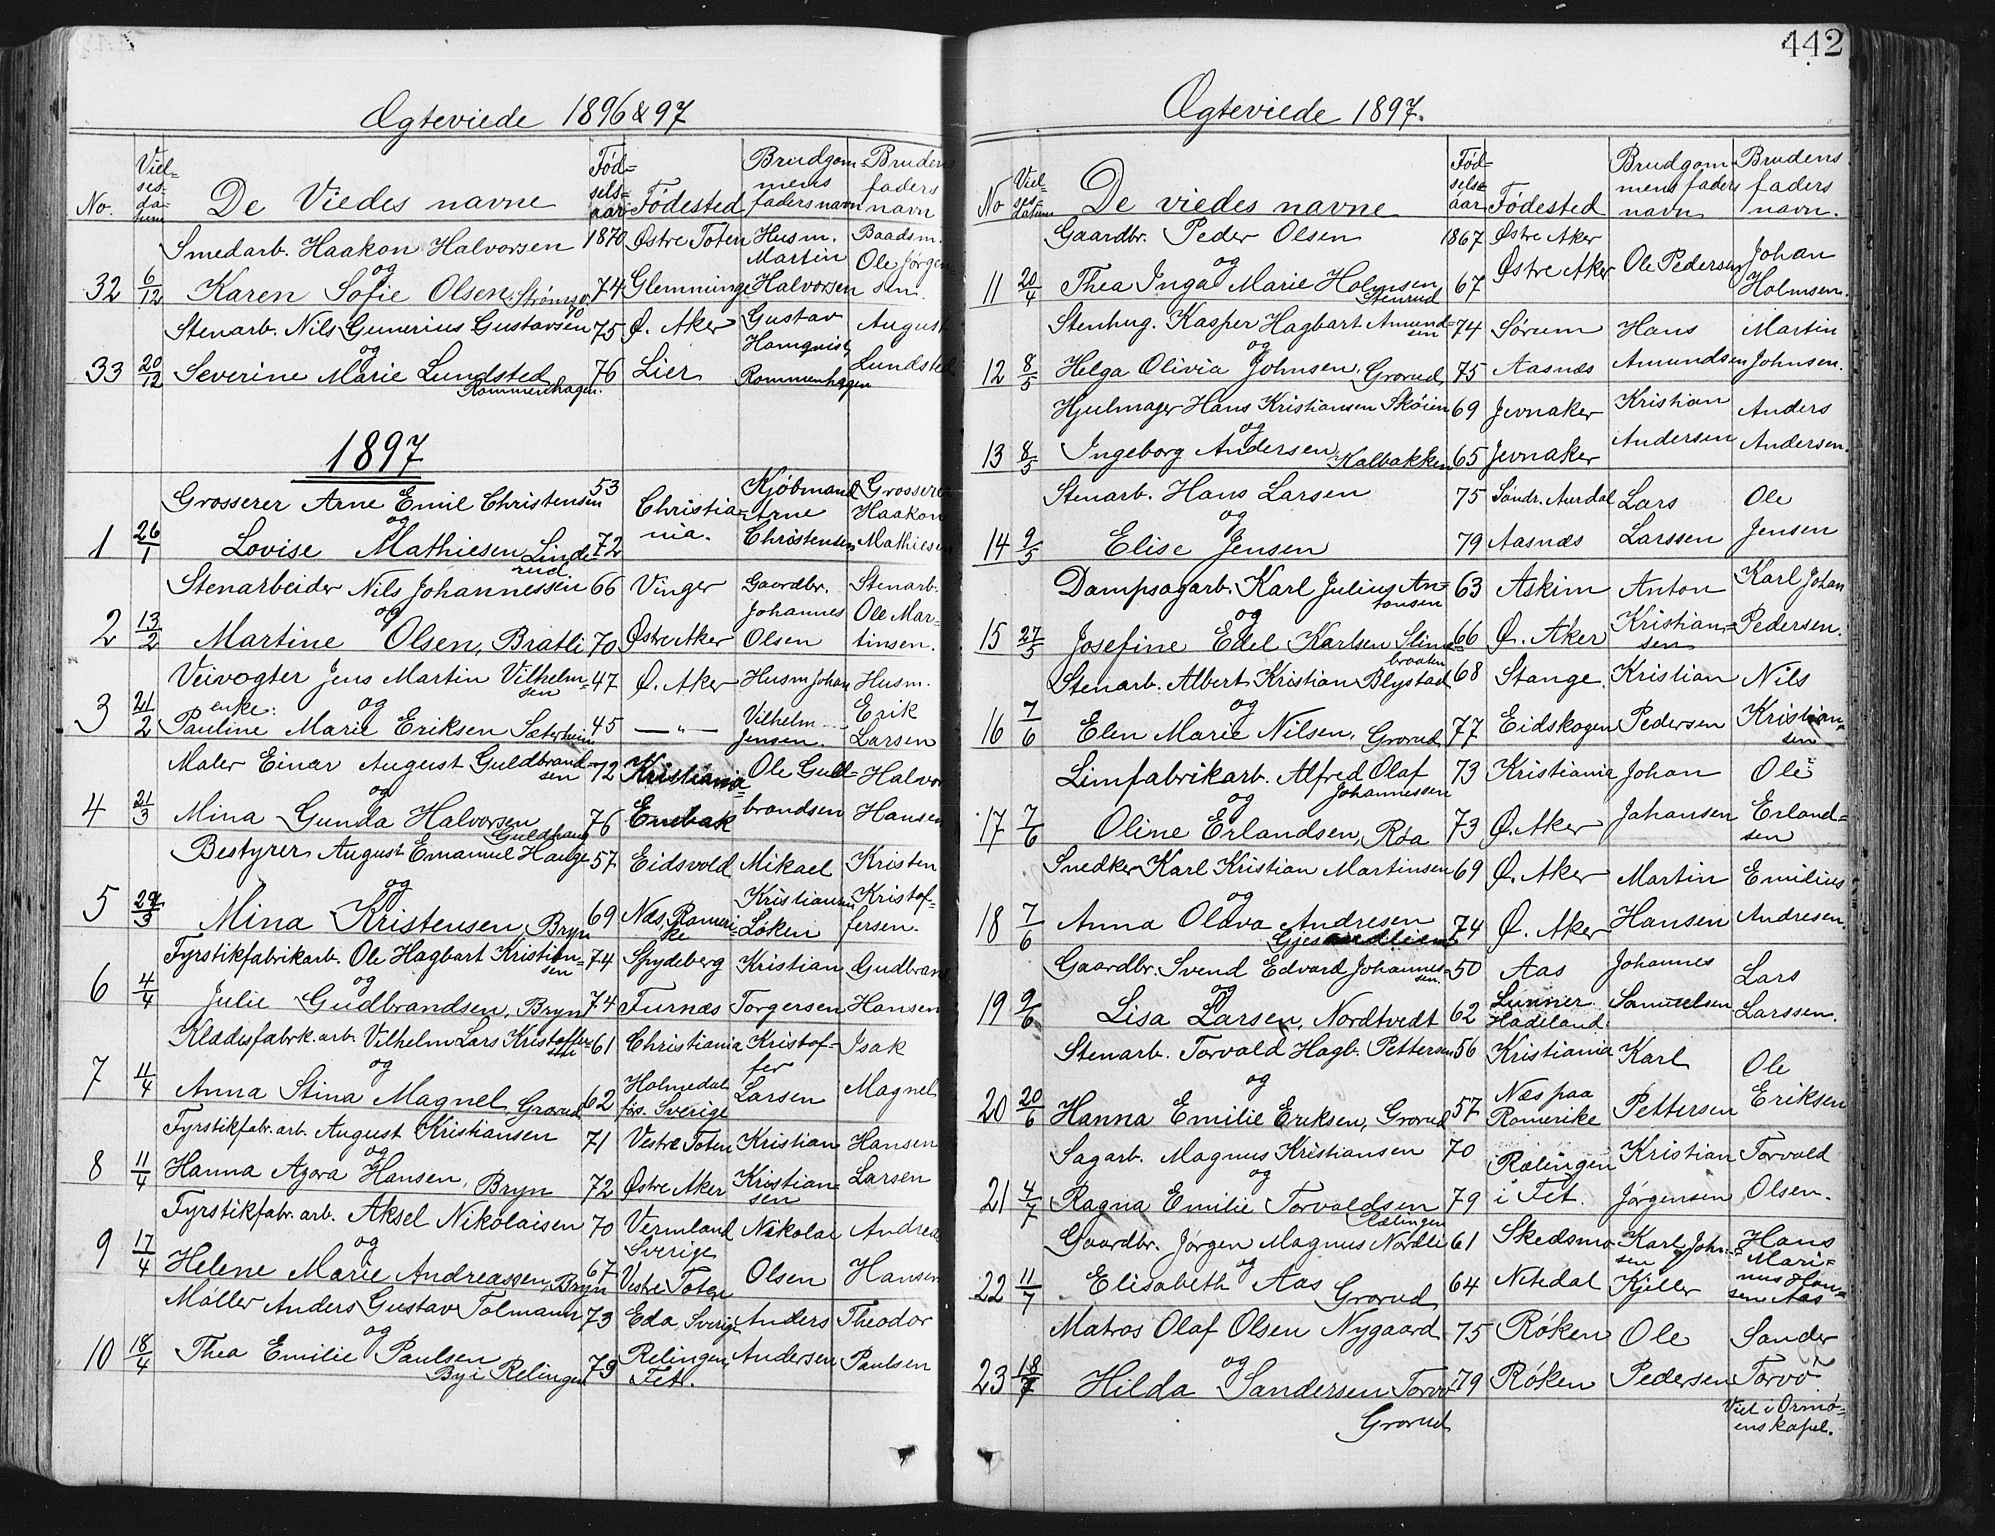 442
Ægteviede 1896 & 97
No.
Viel-
ses-
da-
tum
De Viedes navne
Fød-
sels-
aar
Fødested
Brudgom-
mens
faders navn
Brudens
faders
navn
Smedarb. Haakon Halvorsen 1870 Østre Toten Husm. Martin Halvorsen Baadsm. Ole Jørgen-
sen.
og
32 6/12 Karen Sofie Olsen, Strømsv. 74 Glemminge
Stenarb. Nils Gunerius Gustavsen 75 Ø. Aker Gustav August
og
33 20/12 Severine Marie Lundsted 76 Lier Rommenhagen Lundsted
Rommenhagen.
1897
Grosserer Arne Emil Christensen 53 Christia-
nia. Kjøbmand Arne Christensen Grosserer Haakon Mathiesen
og
1 26/1 Lovise Mathiesen Linde-
rud 72
Stenarbeider Nils Johannessen 66 Vinger Gaardbr. Johannes Olsen Stenarb. Ole Mar-
tinsen.
og
2 13/2 Martine Olsen, Bratli 70 Østre Aker
Veivogter Jens Martin Vilhelm-
sen 47 Ø. Aker Husm Johan Vilhelm Jensen. Husm. Erik Larsen
enke: og
3 21/2 Pauline Marie Eriksen Sæterheim 45 — " —
Maler Einar August Guldbrand-
sen 72 Kristiania Ole Guld-
brandsen Halvor Hansen
og
4 21/3 Mina Gunda Halvorsen 76 Enebak
Bestyrer August Emanuel Hauge 57 Eidsvold Mikael Kristiansen Løken Kristen Kristof-
fersen.
og
5 29/3 Mina Kristensen, Bryn 69 Næs, Romeri-
ke
Fyrstikfabrikarb. Ole Hagbart Kristian-
sen 74 Spydeberg Kristian Torgersen Gudbrand Hansen
og
6 4/4 Julie Gudbrandsen, Bryn 74 Furnæs
Klædesfabrk. arb. Vilhelm Lars Kristoffer-
sen 61 Christiania Kristof-
fer Larsen Isak Magnel
og
7 11/4 Anna Stina Magnel, Grorud 62 Holmedal fös. Sverige
Fyrstikfabr. arb. August Kristiansen 71 Vestre Toten Kristian Kristian-
sen Hansen Larsen
og
8 11/4 Hanna Agora Hansen, Bryn 72 Østre Aker
Fyrstikfabr. arb. Aksel Nikolaisen 70 Vermland Sverige Nikolai Olsen Andreas Hansen
og
9 17/4 Helene Marie Andreassen, Bryn 67 Vestre Toten
Møller Anders Gustav Tolmann 73 Eda, Sverige Anders Andersen Theodor Paulsen
og
10 18/4 Thea Emilie Paulsen 79 Relingen, Fet.
By i Relingen
Ægteviede 1897.
No
Viel-
ses-
datum
De viedes navne
Fød-
sels-
aar
Fødested
Brudgom-
mens faders
navn
Brudens
faders
navn.
Gaardbr. Peder Olsen 1867 Østre Aker Ole Pedersen Johan Holmsen.
og
11 20/4 Thea Inga Marie Holmsen 67 Østre Aker
Stenrud
Stenhug. Kasper Hagbart Amund-
sen 74 Sørum Hans Amundsen Martin Johnsen.
og
12 8/5 Helga Olivia Johnsen, Grorud, 75 Aasnæs
Hjulmager Hans Kristiansen Skøien 69 Jevnaker Kristian Andersen Anders Andersen.
og
13 8/5 Ingeborg Andersen, Kalbakken 65 Jevnaker
Stenarb. Hans Larsen 75 Søndr. Aurdal Lars Larssen Ole Jensen
og
14 9/5 Elise Jensen 79 Aasnæs
Dampsagarb. Karl Julius An-
tonsen 63 Askim Anton Kristian-
sen Karl Johan Pedersen.
og
15 27/5 Josefine Edel Karlsen Slime-
braaten 66 Ø. Aker
Stenarb. Albert Kristian Blystad 68 Stange. Kristian Pedersen Nils Kristian-
sen
og
16 7/6 Elen Marie Nilsen, Grorud 77 Eidskogen
Limfabrikarb. Alfred Olaf
Johannessen 73 Kristiania Johan Johansen Ole Erland-
sen
og
17 7/6 Oline Erlandsen, Røa 73 Ø. Aker
Snedker Karl Kristian Martinsen 69 Ø. Aker Martin Hansen Emilius Andresen.
og
18 7/6 Anna Olava Andresen 74 Ø. Aker
Gaardbr. Svend Edvard Johannes-
sen 50 Aas Johannes Samuelsen Lars Larssen.
og
19 9/6 Lisa Larsen, Nordtvedt 62 Lunner Hadeland.
Stenarb. Torvald Hagb. Pettersen 56 Kristiania Karl Pettersen Ole Eriksen
og
20 20/6 Hanna Emilie Eriksen, Grorud 57 Næs paa Romerike
Sagarb. Magnus Kristiansen 70 Rælingen i Fet. Kristian Jørgensen Torvald Olsen.
og
21 4/7 Ragna Emilie Torvaldsen 79
Rælingen
Gaardbr. Jørgen Magnus Nordli 61 Skedsmo Karl Johan-
sen Kjeller Hans Mari-
nus Han-
sen Aas
og
22 11/7 Elisabeth Aas Grorud 64 Nitedal
Matros Olaf Olsen Nygaard 75 Røken Ole Pedersen Sander Torvø.
og
23 18/7 Hilda Sandersen Torvø 79 Røken
Grorud
Viet i Ormø-
ens kapel.